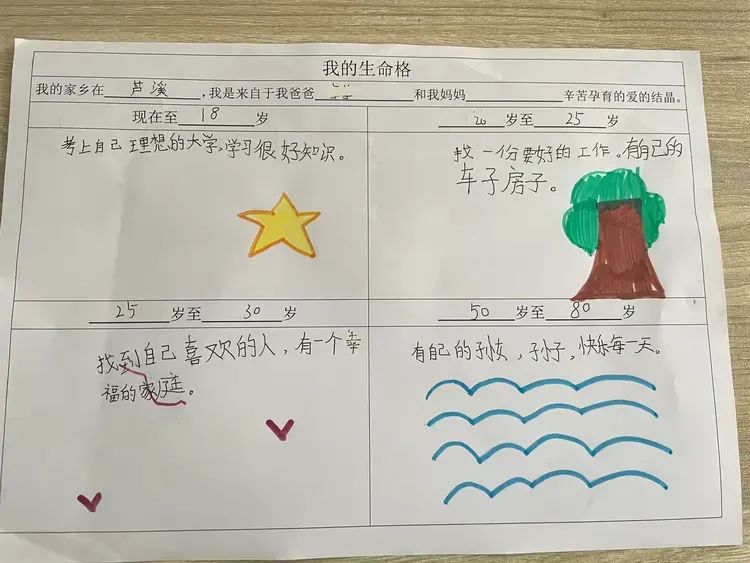 我的生命格
我的家乡在 芦溪 ,我是来自于我爸爸 和我妈妈 辛苦孕育的爱的结晶。
现在至 18 岁
岁至 25 岁
考上自己理想的大学,学习很好知识。
找一份要好的工作。有自己的
车子房子。
25 岁至 30 岁
50 岁至 80 岁
找到自己喜欢的人,有一个幸
福的家庭。
有自己的孙女,孙子,快乐每一天。